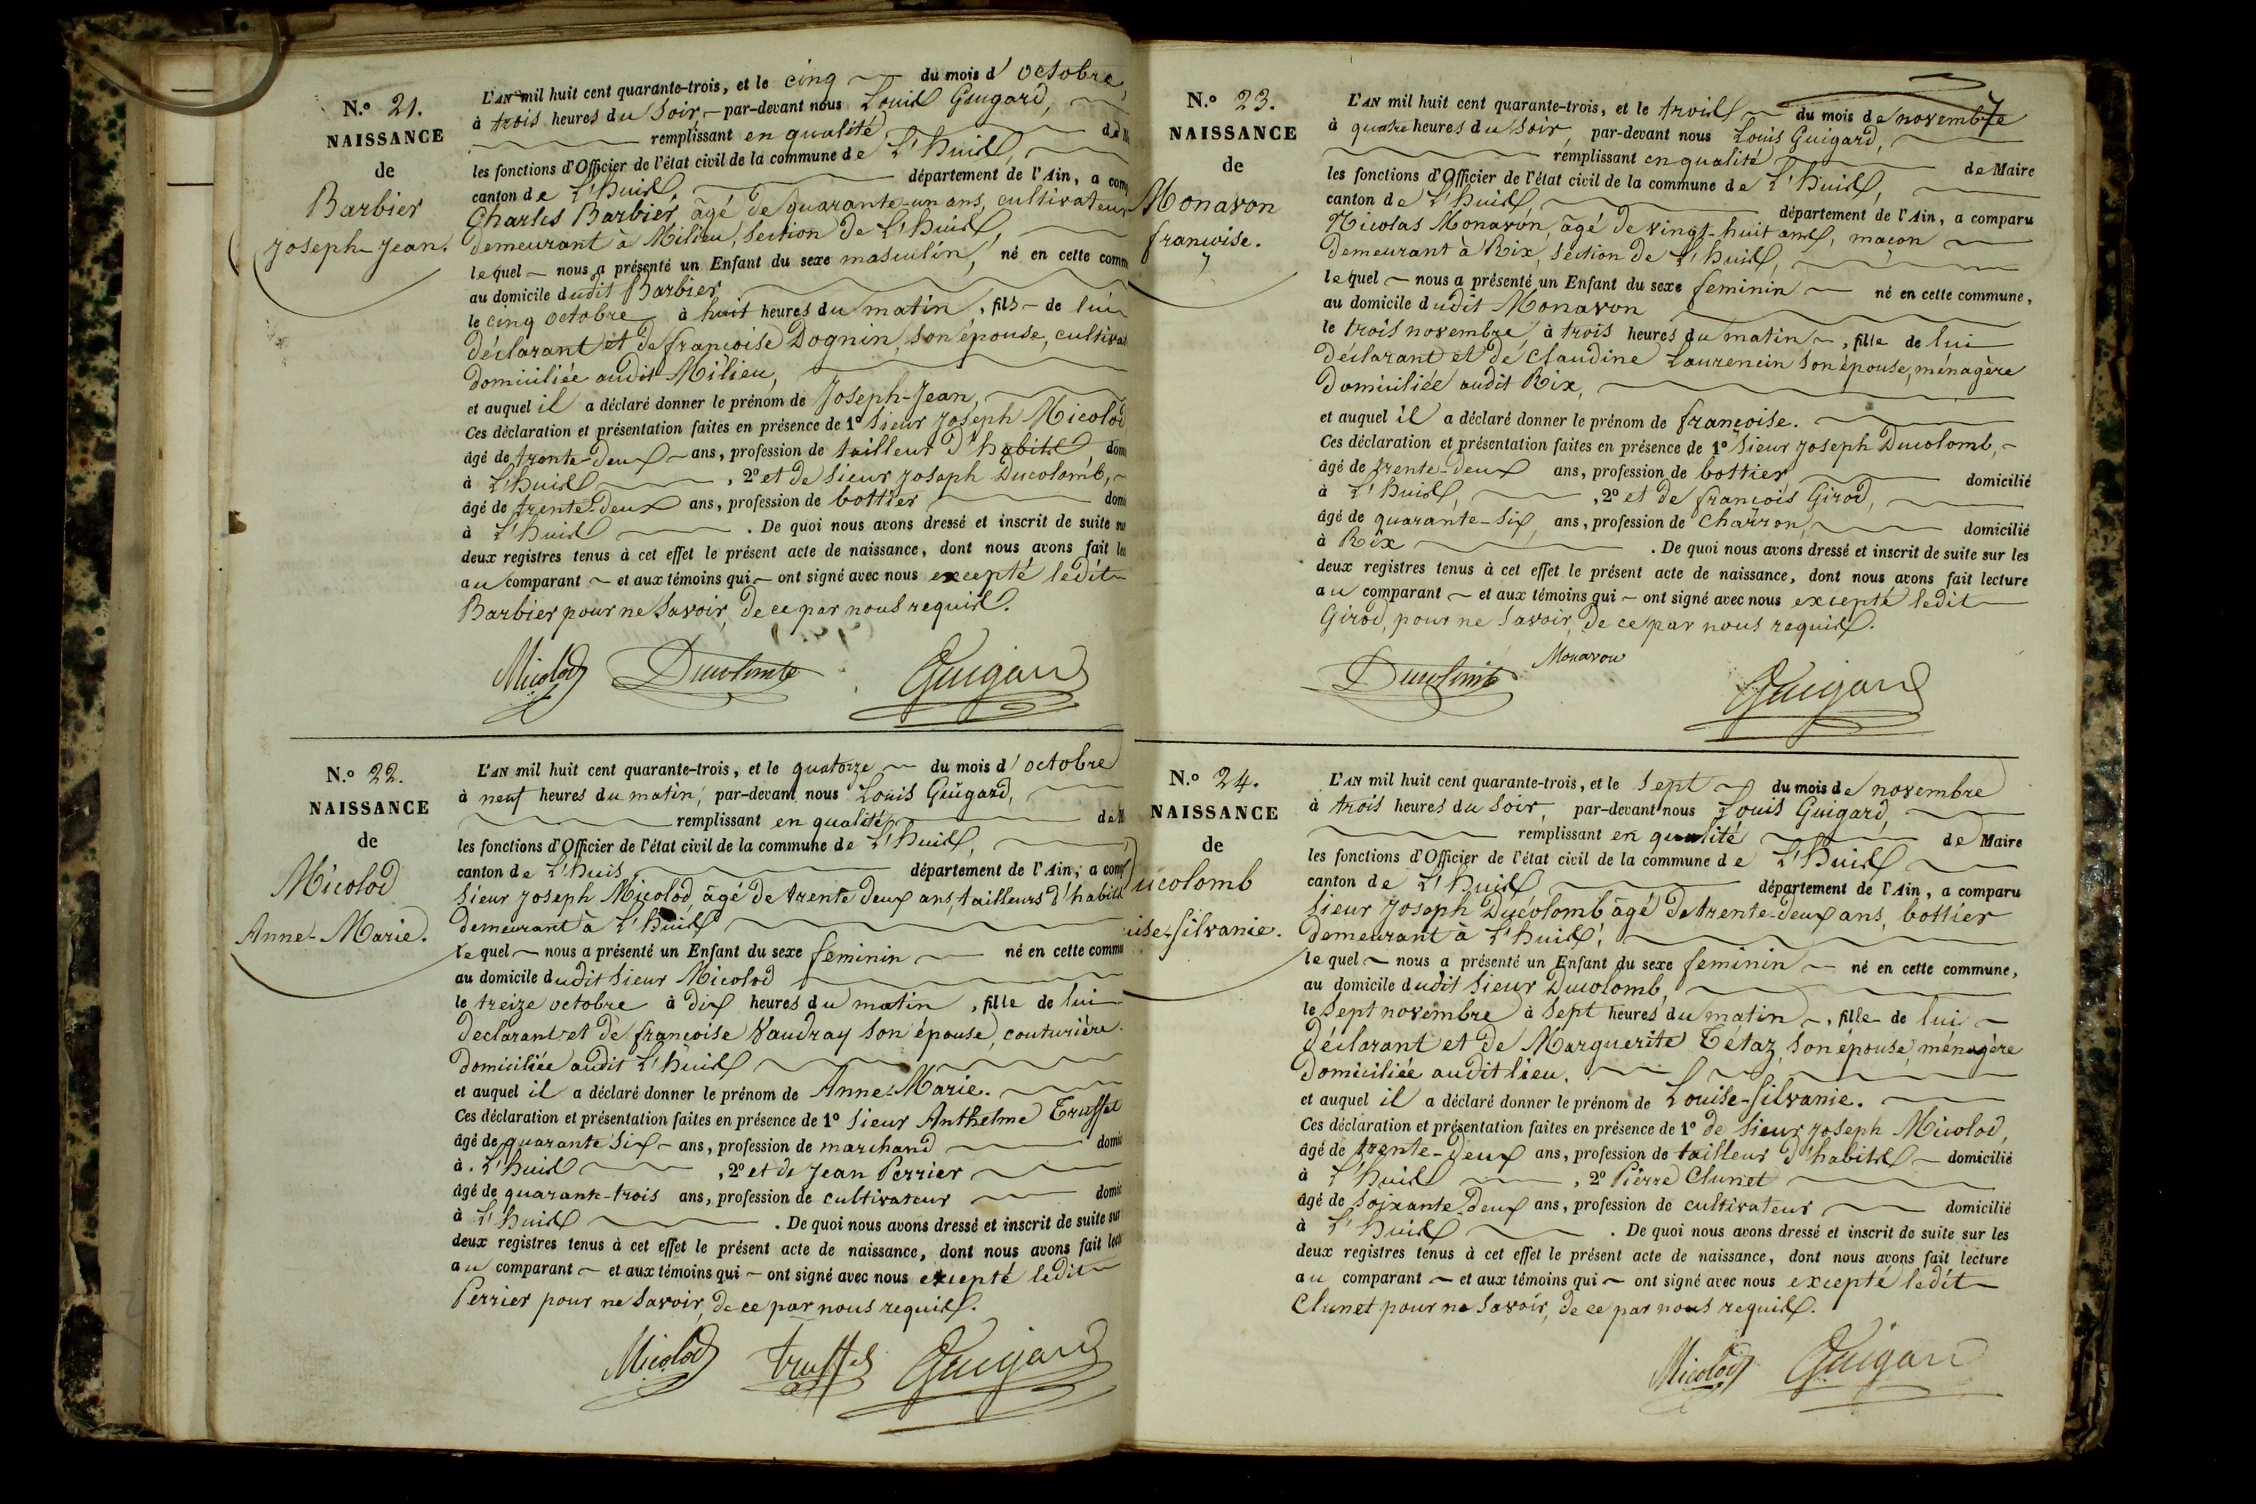 N.o 21.
NAISSANCE
de
Barbier
Joseph-Jean.
L'AN mil huit cent quarante-trois, et le cinq du mois d'octobre,
à trois heures du soir, par-devant nous Louis Guigard,
remplissant en qualité de
les fonctions d'Officier de l'état civil de la commune de L'huis,
canton de L'huis, département de l'Ain, a
Charles Barbier, âgé de quarante-un ans, cultivateur
demeurant à Milieu, section de L'huis,
lequel nous a présenté un Enfant du sexe masculin, né en cette
au domicile dudit Barbier
le cinq octobre à huit heures du matin, fils de lui
déclarant et de françoise Dognin, son épouse,
domiciliée audit Milieu,
et auquel il a déclaré donner le prénom de Joseph-Jean,
Ces déclaration et présentation faites en présence de 1o sieur joseph Micolod
âgé de trente-deux ans, profession de tailleur d'habits
à L'huis, 2o et de sieur joseph Ducolomb,
âgé de trente-deux ans, profession de bottier
à L'huis. De quoi nous avons dressé et inscrit de suite
deux registres tenus à cet effet le présent acte de naissance, dont nous avons fait
au comparant et aux témoins qui ont signé avec nous excepté ledit
Barbier pour ne savoir, de ce par nous requis.
Micolod Ducolomb Guigard
N.o 22.
NAISSANCE
de
Micolod
Anne-Marie.
L'AN mil huit cent quarante-trois, et le quatorze du mois d'octobre
à neuf heures du matin, par-devant nous Louis Guigard,
remplissant en qualité de
les fonctions d'Officier de l'état civil de la commune de L'huis,
canton de L'huis, département de l'Ain, a
sieur joseph Micolod, âgé de trente deux ans, tailleurs d'habits
demeurant à L'huis
lequel nous a présenté un Enfant du sexe feminin né en cette
au domicile dudit sieur Micolod
le treize octobre à dix heures du matin, fille de lui
declarant et de françoise Vaudray son épouse, couturière.
domiciliée audit L'huis
et auquel il a déclaré donner le prénom de Anne-Marie.
Ces déclaration et présentation faites en présence de 1o sieur Anthelme Truffet
âgé de quarante six ans, profession de marchand
à L'huis, 2o et de Jean Perrier
âgé de quarante-trois ans, profession de cultivateur
à L'huis. De quoi nous avons dressé et inscrit de suite sur
deux registres tenus à cet effet le présent acte de naissance, dont nous avons fait
au comparant et aux témoins qui ont signé avec nous excepté ledit
Perrier pour ne savoir, de ce par nous requis.
Micolod Truffet Guigard
7
N.o 23.
NAISSANCE
de
Monavon
françoise.
L'AN mil huit cent quarante-trois, et le trois du mois de novembre
à quatre heures du soir, par-devant nous Louis Guigard,
remplissant en qualité de Maire
les fonctions d'Officier de l'état civil de la commune de L'huis,
canton de L'huis, département de l'Ain, a comparu
Nicolas Monavon, âgé de vingt-huit ans, maçon
demeurant à Rix, section de L'huis,
lequel nous a présenté un Enfant du sexe feminin né en cette commune,
au domicile dudit Monavon
le trois novembre à trois heures du matin, fille de lui
déclarant et de Claudine Laurencin son épouse, ménagère
domiciliée audit Rix,
et auquel il a déclaré donner le prénom de françoise.
Ces déclaration et présentation faites en présence de 1o sieur joseph Ducolomb,
âgé de trente-deux ans, profession de bottier, domicilié
à L'huis, 2o et de françois Girod,
âgé de quarante-six ans, profession de charron, domicilié
à Rix. De quoi nous avons dressé et inscrit de suite sur les
deux registres tenus à cet effet le présent acte de naissance, dont nous avons fait lecture
au comparant et aux témoins qui ont signé avec nous excepté ledit
Girod, pour ne savoir, de ce par nous requis.
Ducolomb Monavon Guigard
N.o 24.
NAISSANCE
de
ucolomb
ise-silvanie.
L'AN mil huit cent quarante-trois, et le sept du mois de novembre
à trois heures du soir, par-devant nous Louis Guigard,
remplissant en qualité de Maire
les fonctions d'Officier de l'état civil de la commune de L'huis
canton de L'huis, département de l'Ain, a comparu
sieur joseph Ducolomb âgé de trente-deux ans, bottier
demeurant à L'huis,
lequel nous a présenté un Enfant du sexe feminin né en cette commune,
au domicile dudit sieur Ducolomb,
le sept novembre à sept heures du matin, fille de lui
déclarant et de Marguerite Tétaz, son épouse, ménagère
domiciliée audit lieu.
et auquel il a déclaré donner le prénom de Louise-silvanie.
Ces déclaration et présentation faites en présence de 1o de sieur joseph Micolod,
âgé de trente-deux ans, profession de tailleur d'habits domicilié
à L'huis, 2o Pierre Clunet
âgé de soixante-deux ans, profession de cultivateur domicilié
à L'huis. De quoi nous avons dressé et inscrit de suite sur les
deux registres tenus à cet effet le présent acte de naissance, dont nous avons fait lecture
au comparant et aux témoins qui ont signé avec nous excepté ledit
Clunet pour ne savoir, de ce par nous requis.
Micolod Guigard